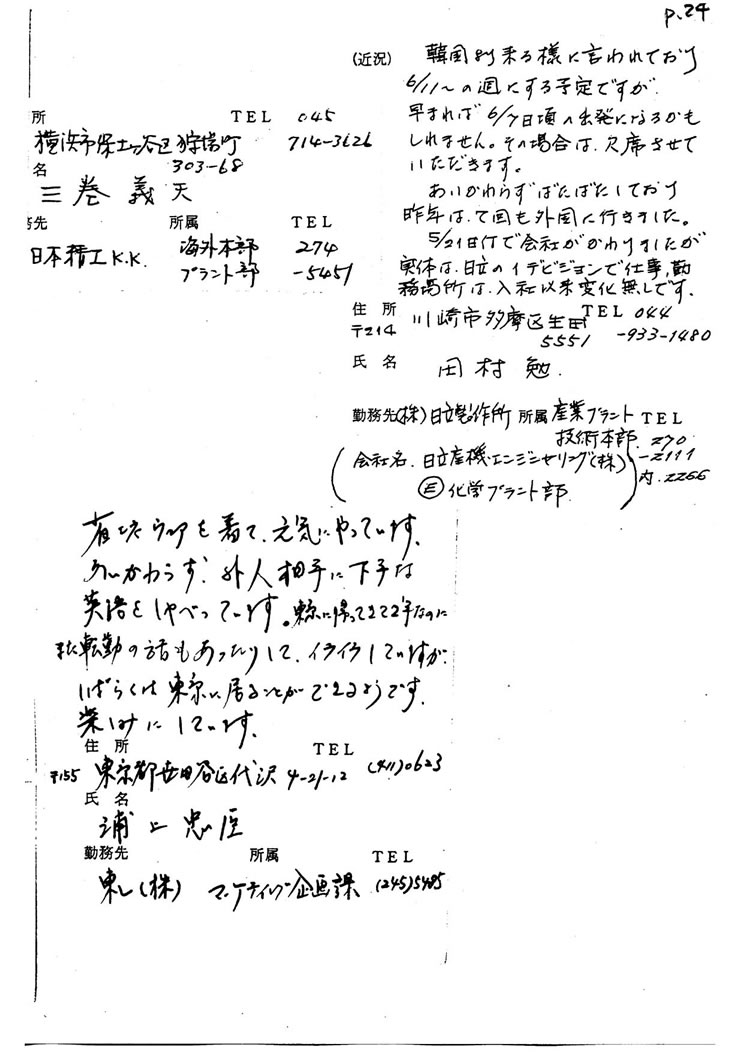 p.24
所 TEL 045
横浜市保土ヶ谷区狩場町 714-3626
303-68
名
三巻義天
務先 所属 TEL
日本精工K.K. 海外本部 274
プラント部 -5451
(近況) 韓国より来る様に言われており
6/11〜の週にする予定ですが、
早まれば 6/7日頃の出発になるかも
しれません。その場合は、欠席させて
いただきます。
あいかわらずばたばたしており
昨年は、て回も外国に行きました。
5/21日付で会社がかわりましたが
実体は、日立の1デビジョンで仕事、勤
務場所は、入社以来変化無しです。
住所 TEL 044
〒214 川崎市多摩区生田 -933-1480
5551
氏名
田村 勉.
勤務先 (株)日立製作所 所属 産業プラント TEL
技術本部. 270
(会社名. 日立産機エンジニヤリング(株)) -2111
Ⓔ 化学プラント部 内.2266
省エネウェアを着て、元気にやっています。
あいかわらず、外人相手に下手な
英語をしゃべっています。東京に帰ってきて2年なのに
また転勤の話もあったりして、イライラしていますが、
しばらくは東京に居ることができるようです。
楽しみにしています。
住所 TEL
〒155 東京都世田谷区代沢 4-21-12 (411)0623
氏名
浦上忠臣
勤務先 所属 TEL
東レ(株) マーケティング企画課 (245)5485